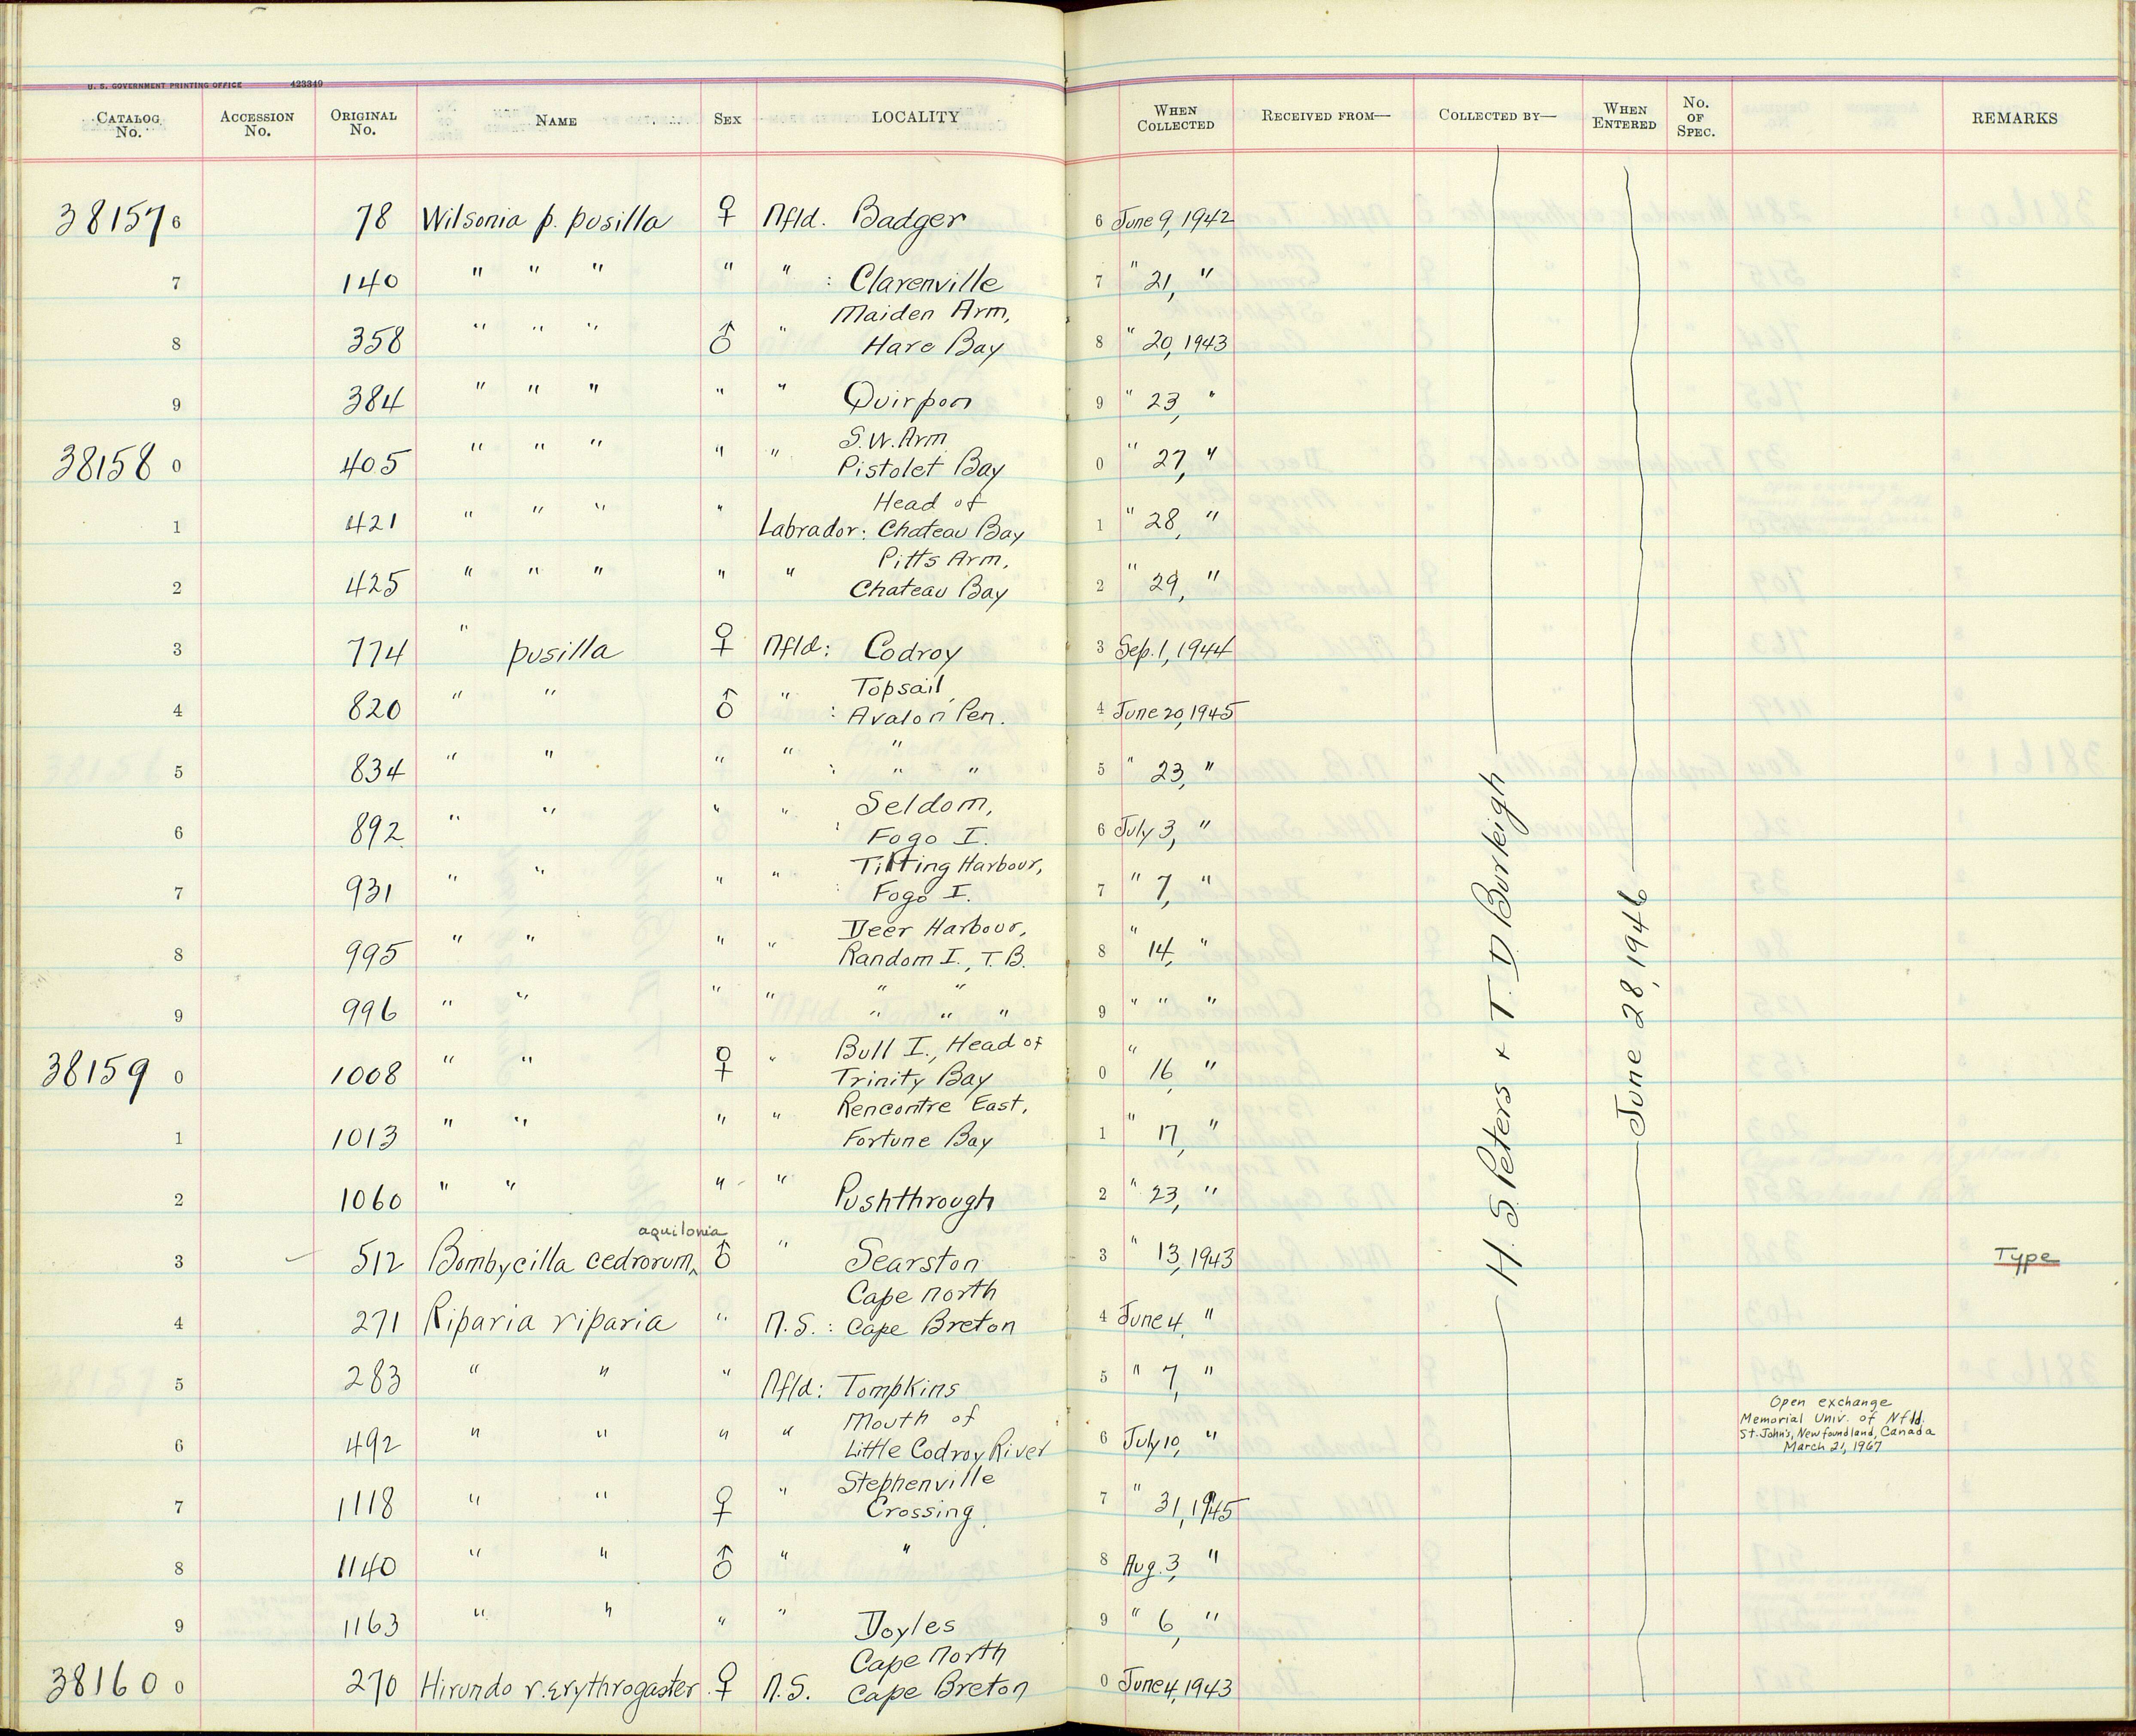 U. S. GOVERNMENT PRINTING OFFICE 423349
CATALOG No. ACCESSION No. ORIGINAL No. NAME SEX LOCALITY WHEN COLLECTED RECEIVED FROM— COLLECTED BY— WHEN ENTERED No. OF SPEC. REMARKS
38157 6 78 Wilsonia p. pusilla ♀ Nfld. Badger 6 June 9, 1942
7 140 " " " " " : Clarenville 7 " 21, "
Maiden Arm,
8 358 " " " ♂ " Hare Bay 8 " 20, 1943
9 384 " " " " " Quirpon 9 " 23, "
S.W. Arm
38158 0 405 " " " " " Pistolet Bay 0 " 27, "
Head of
1 421 " " " " Labrador: Chateau Bay 1 " 28, "
Pitts Arm,
2 425 " " " " " Chateau Bay 2 " 29, "
3 774 " pusilla ♀ Nfld: Codroy 3 Sep. 1, 1944
Topsail,
4 820 " " ♂ " : Avalon Pen. 4 June 20, 1945
"
5 834 " " " " : " " " 5 " 23, "
Seldom,
6 892 " " " " : Fogo I. 6 July 3, "
Tilting Harbour,
7 931 " " " " : Fogo I. 7 " 7, "
Deer Harbour,
8 995 " " " " Random I., T.B. 8 " 14, "
" "
9 996 " " " " " " " 9 " " "
Bull I., Head of
38159 0 1008 " " ♀ " Trinity Bay 0 " 16, "
Rencontre East,
1 1013 " " " " Fortune Bay 1 " 17, "
2 1060 " " " " Pushthrough 2 " 23, "
aquilonia
3 512 Bombycilla cedrorum ‸ ♂ " Searston 3 " 13, 1943 Type
Cape North
4 271 Riparia riparia " N.S. : Cape Breton 4 June 4, "
5 283 " " " Nfld: Tompkins 5 " 7, "
Mouth of
6 492 " " " " Little Codroy River 6 July 10, "
Open exchange
Memorial Univ. of Nfld.
St. John's, Newfoundland, Canada
March 21, 1967
Stephenville
7 1118 " " ♀ " Crossing 7 " 31, 1945
8 1140 " " ♂ " " 8 Aug. 3, "
9 1163 " " " " Doyles 9 " 6, "
Cape North
38160 0 270 Hirundo r. erythrogaster ♀ N.S. Cape Breton 0 June 4, 1943
H. S. Peters & T. D. Burleigh
June 28, 1946